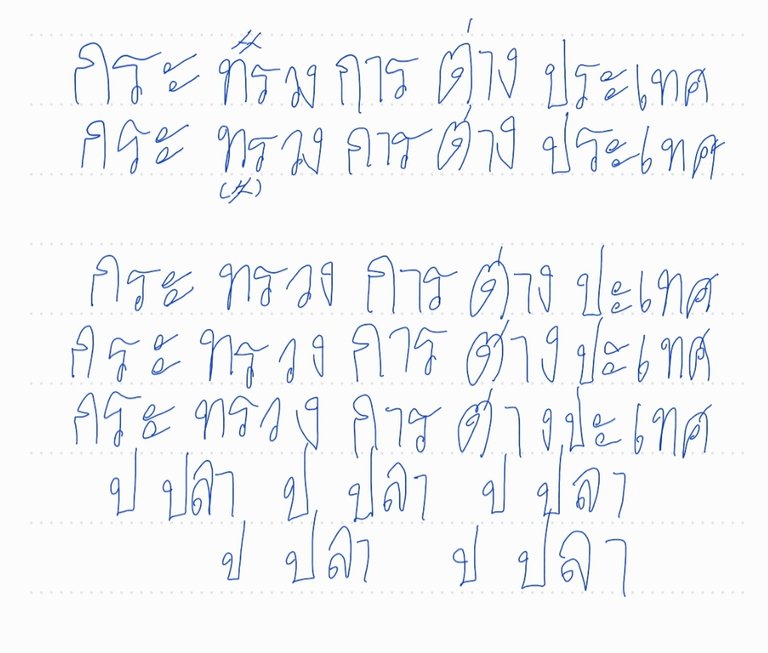 กระ ทรวง การ ต่าง ประเทศ
กระ ทรวง การ ต่าง ประเทศ
กระ ทรวง การ ต่าง ปะเทศ
กระ ทรวง การ ต่าง ปะเทศ
กระ ทรวง การ ต่าง ปะเทศ
ป ปลา ป ปลา ป ปลา
ป ปลา ป ปลา